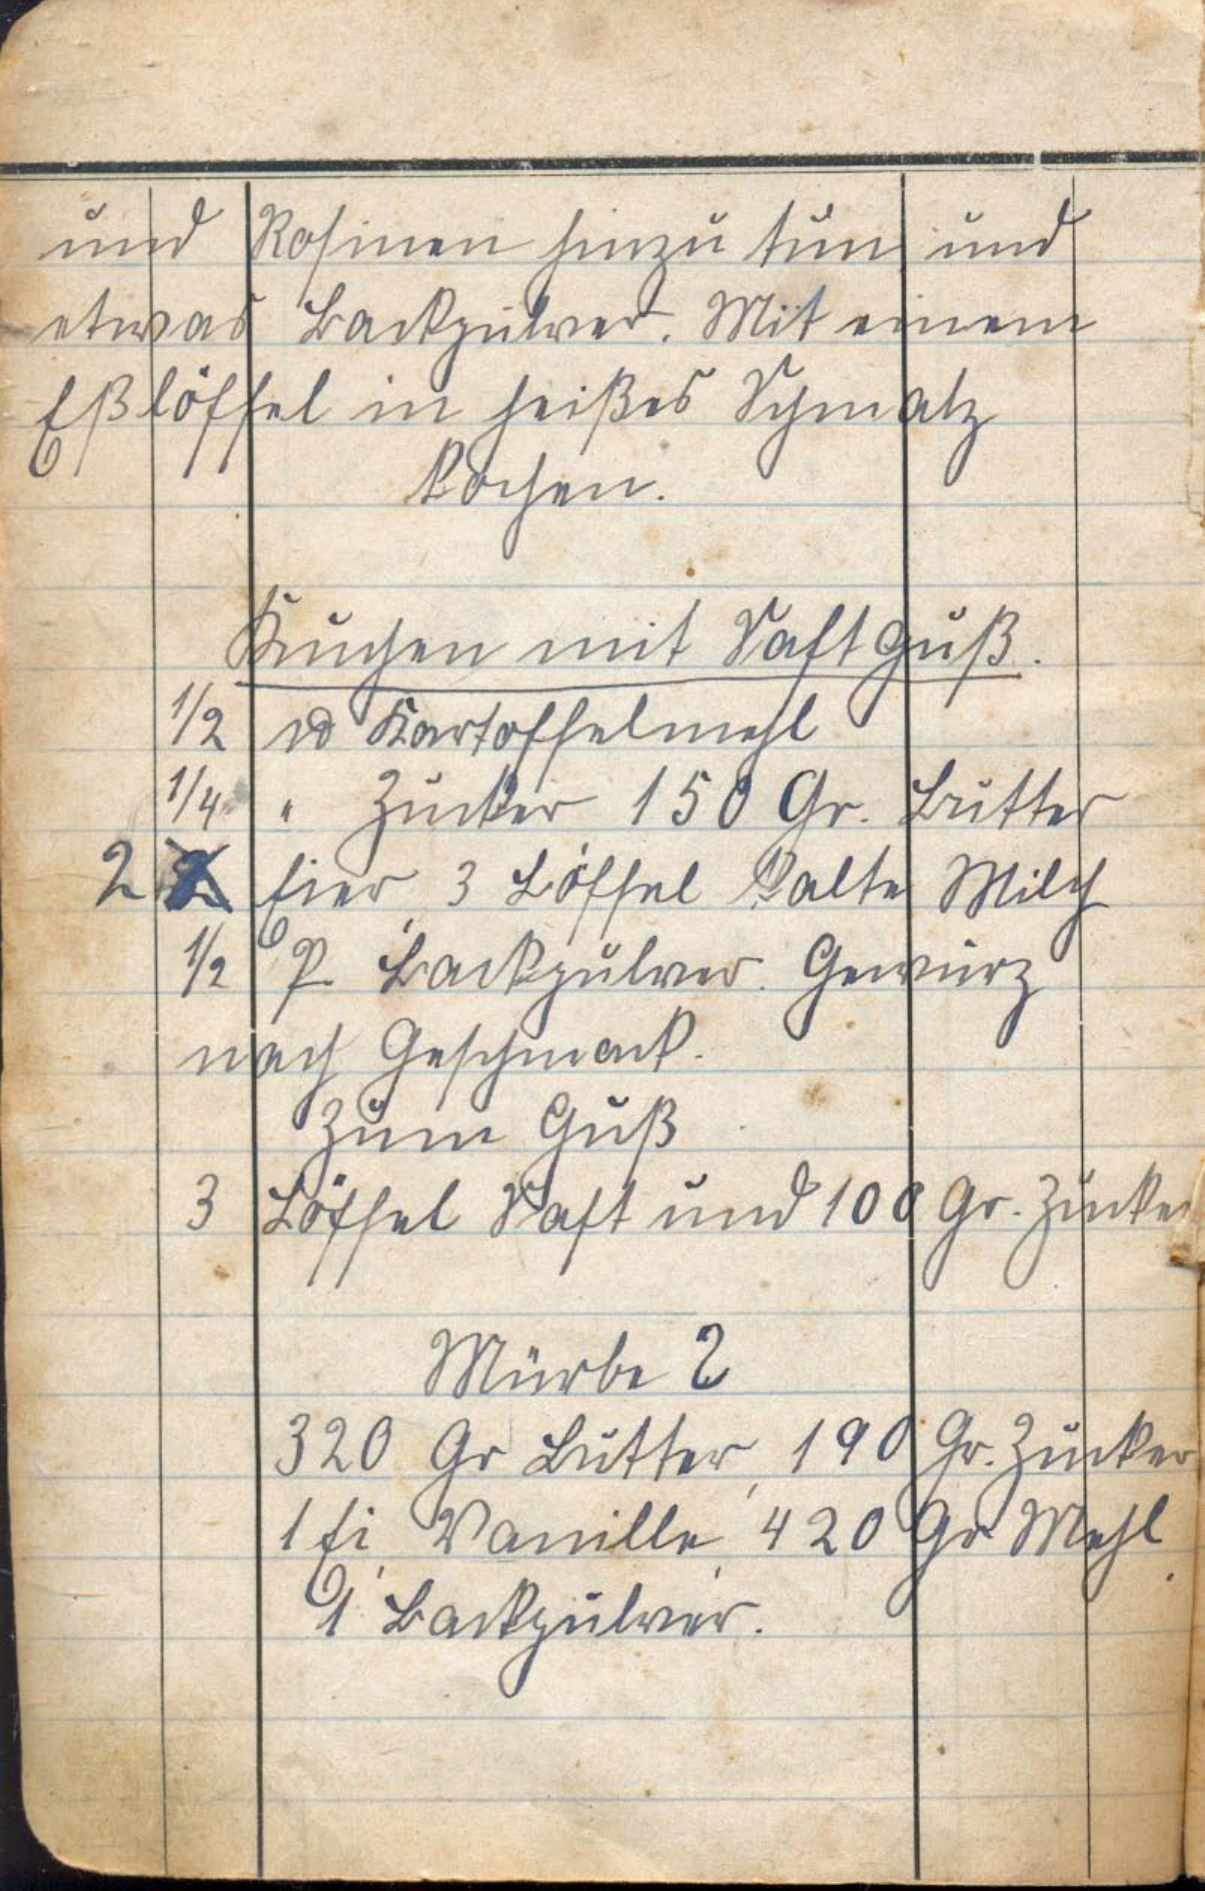 und Rosinen hinzu tun und
etwas Backpulver. Mit einem
Eßlöffel in heißes Schmalz
kochen.
Kuchen mit Saftguß.
1/2 ℔ Kartoffelmehl
1/4 " Zucker 150 Gr. Butter
2 Eier, 3 Löffel kalte Milch
1/2 P. Backpulver. Gewürz
nach Geschmack.
Zum Guß
3 Löffel Saft und 100 Gr. Zucker
Mürbe 2
320 Gr Butter, 190 Gr. Zucker
1 Ei, Vanille, 420 Gr Mehl
1 Backpulver.